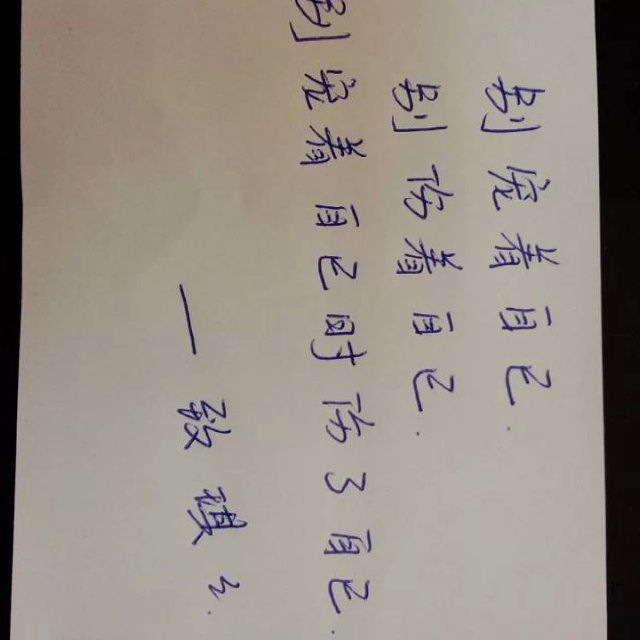 别宠着自己.
别伤着自己.
别宠着自己时伤了自己.
— 致